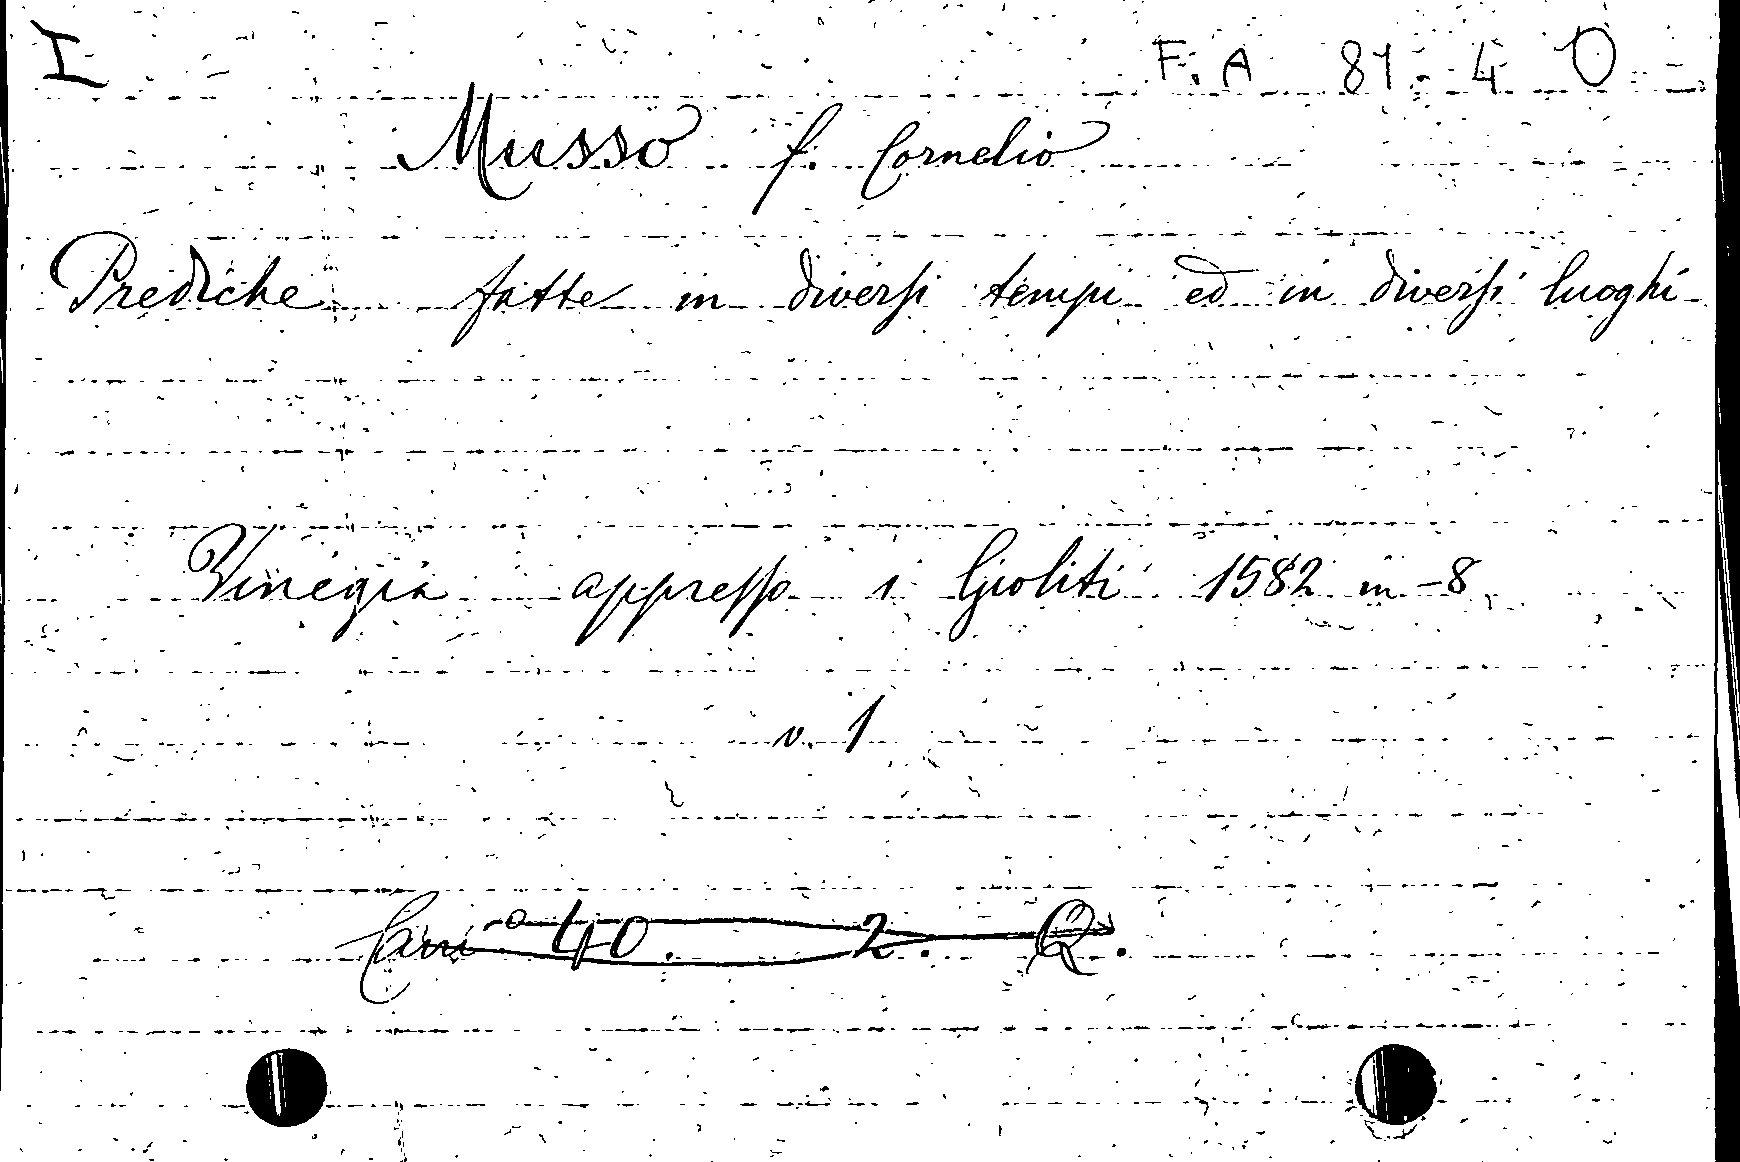 I F. A 81. 4 O
Musso f. Cornelio
Prediche fatte in diversi tempi ed in diversi luoghi
Vinegia appresso i Gioliti 1582 in-8
v. 1
40. 2. Q.